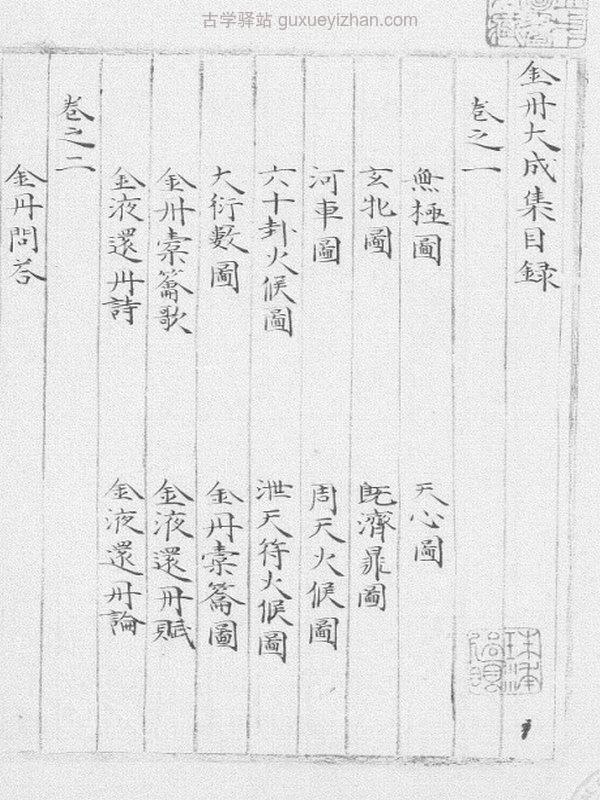 古学驿站 guxueyizhan.com
金丹大成集目録
卷之一
無極圖 天心圖
玄牝圖 既濟鼎圖
河車圖 周天火候圖
六十卦火候圖 泄天符火候圖
大衍數圖 金丹橐籥圖
金丹橐籥歌 金液還丹賦
金液還丹詩 金液還丹論
卷之二
金丹問答